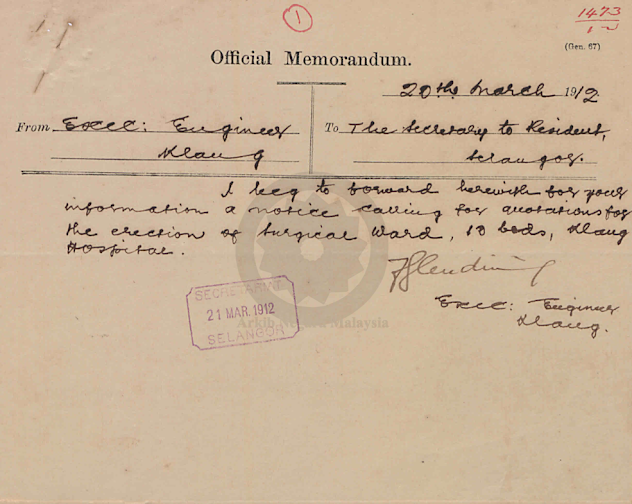 1
1473
12
(Gen. 67)
Official Memorandum.
20th March 1912
From Exec: Engineer
Klang
To The Secretary to Resident,
Selangor.
I beg to forward herewith for your
information a notice calling for quotations for
the erection of Surgical Ward, 10 beds, Klang
Hospital.
Exec: Engineer
Klang.
SECRETARIAT
21 MAR. 1912
SELANGOR
Arkib Negara Malaysia